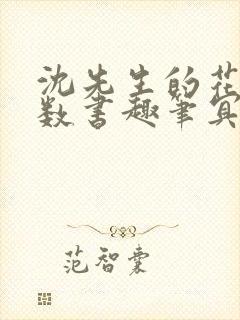 沈先生的花
数书趣笔真
范智橐